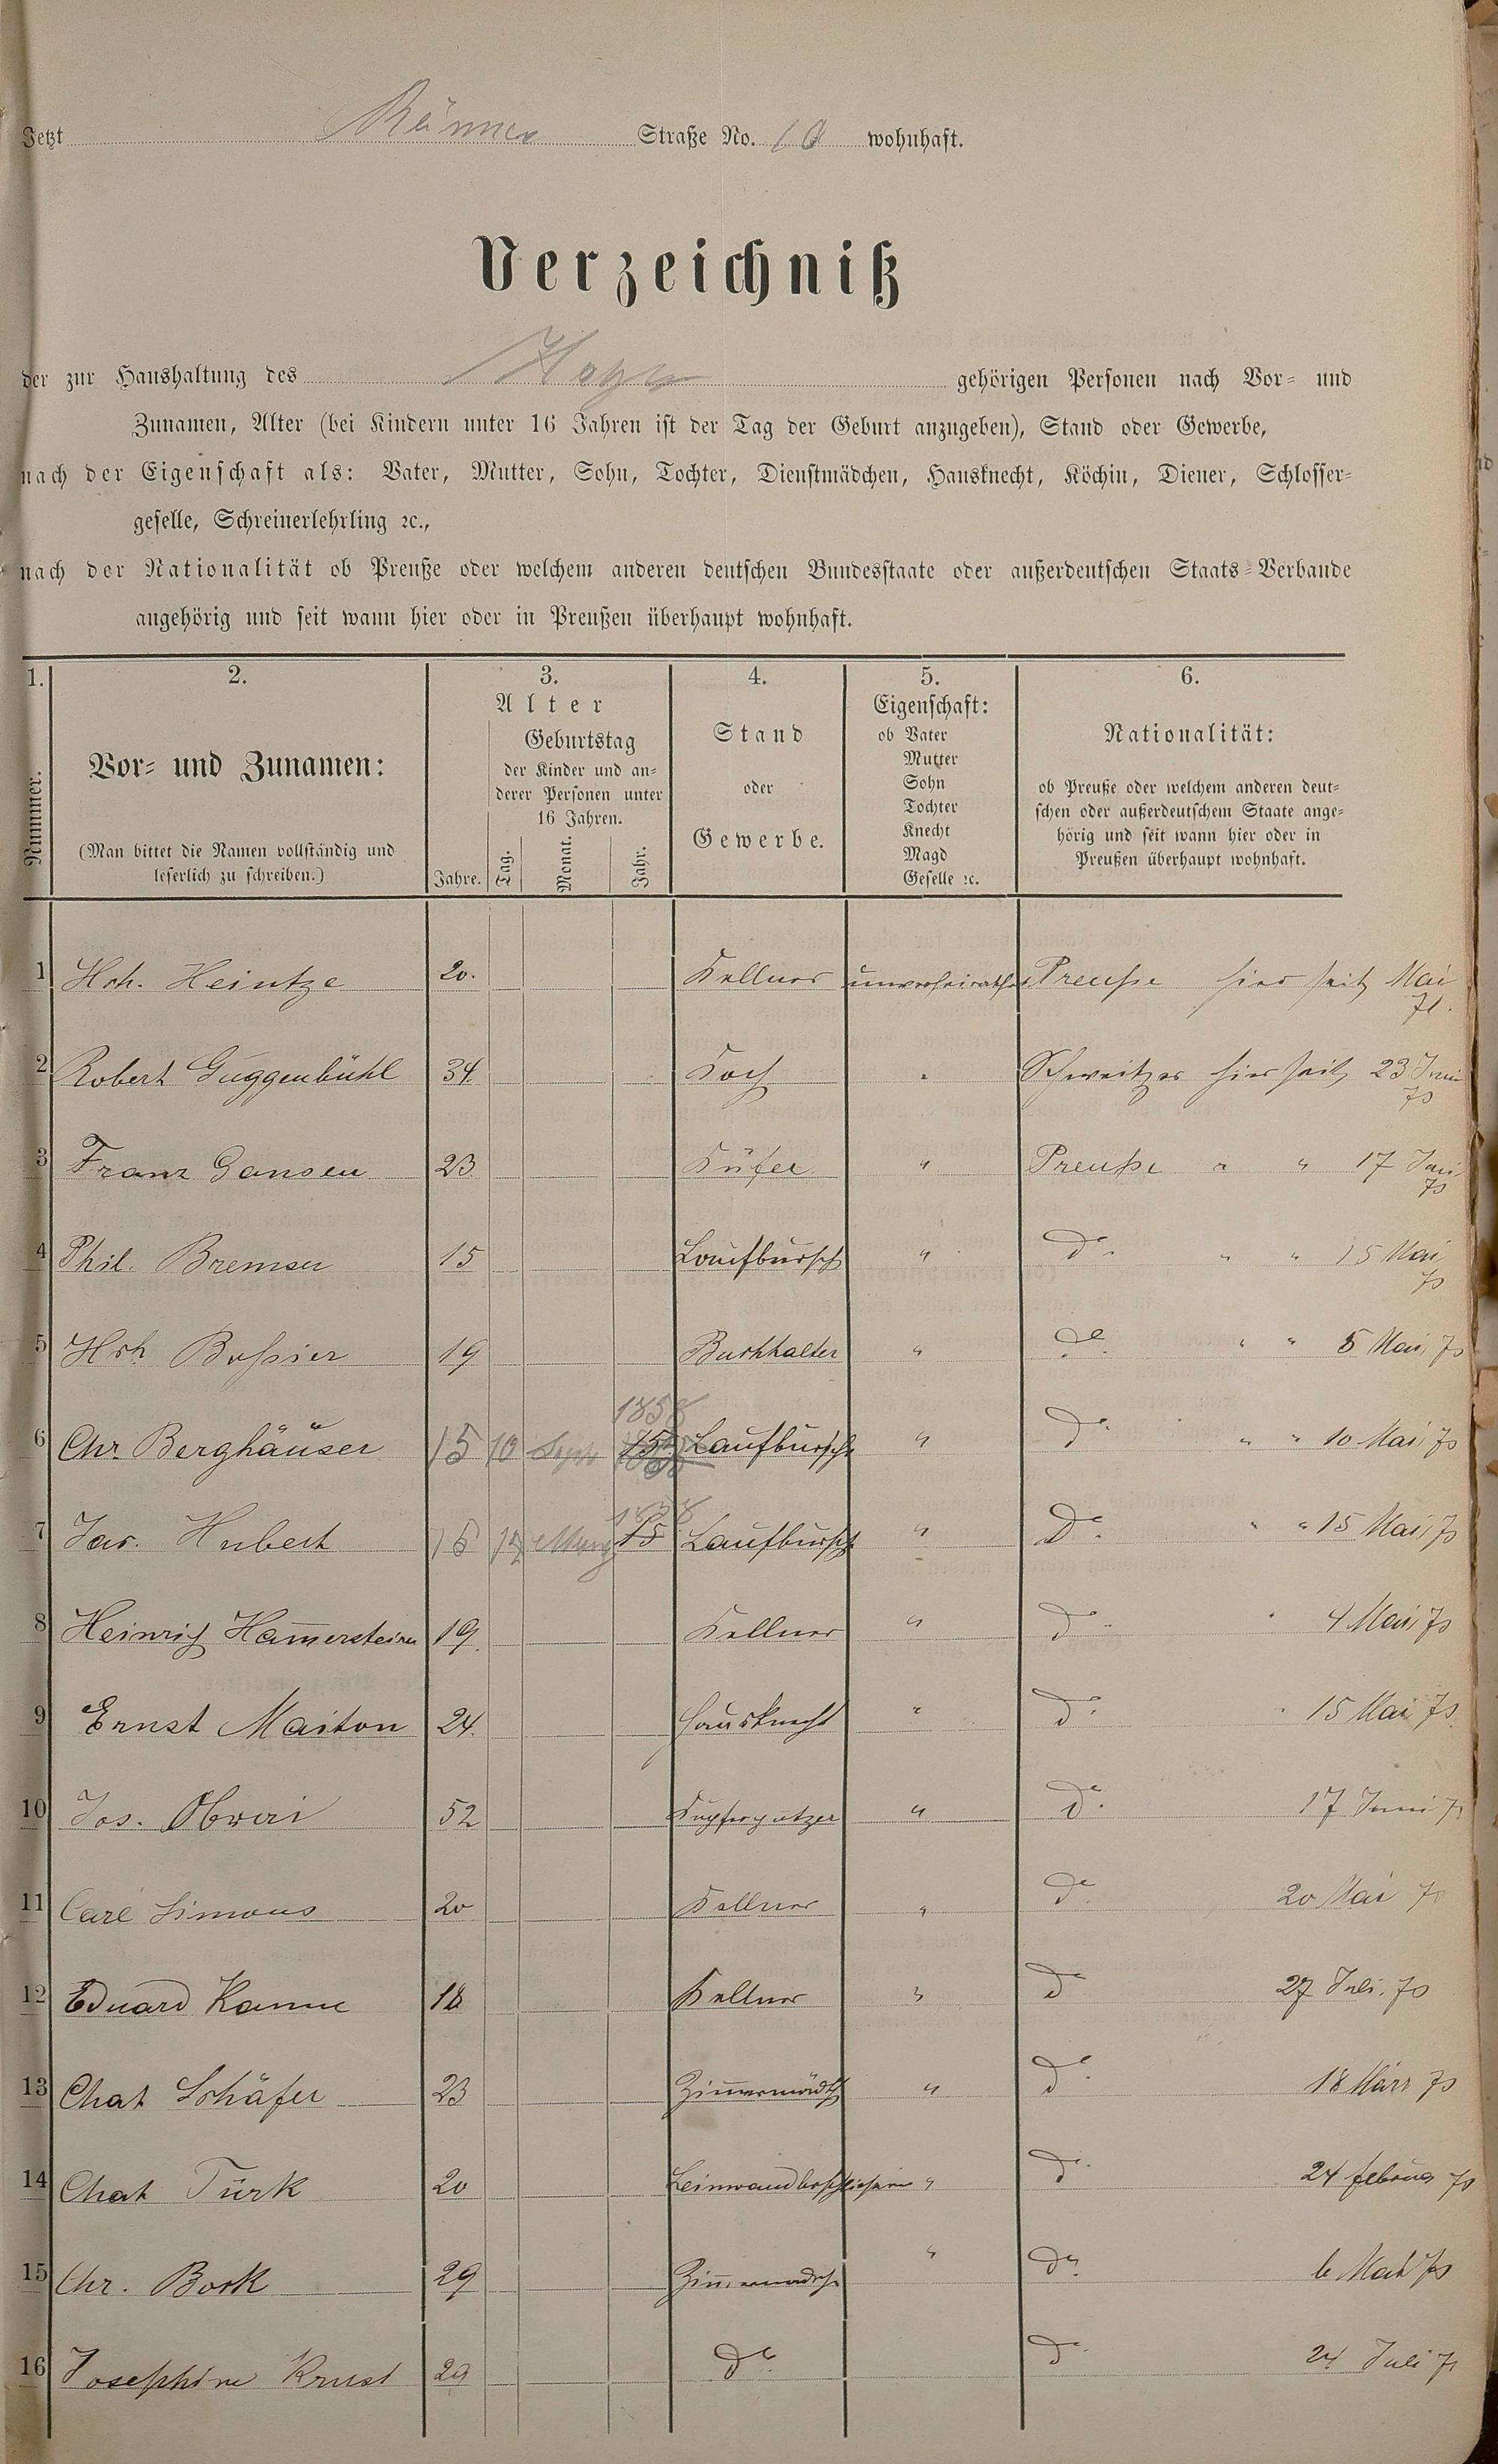 Jetzt Straße No. 10 wohnhaft.
Verzeichniß
der zur Haushaltung des gehörigen Personen nach Vor- und
Zunamen, Alter (bei Kindern unter 16 Jahren ist der Tag der Geburt anzugeben), Stand oder Gewerbe,
nach der Eigenschaft als: Vater, Mutter, Sohn, Tochter, Dienstmädchen, Hausknecht, Köchin, Diener, Schlosser-
geselle, Schreinerlehrling ꝛc.,
nach der Nationalität ob Preuße oder welchem anderen deutschen Bundesstaate oder außerdeutschen Staats-Verbande
angehörig und seit wann hier oder in Preußen überhaupt wohnhaft.
1. 2. 3. 4. 5. 6.
Nummer.
Vor- und Zunamen:
(Man bittet die Namen vollständig und
leserlich zu schreiben.)
Alter
Geburtstag
der Kinder und an-
derer Personen unter
16 Jahren.
Jahre. Tag. Monat. Jahr.
Stand
oder
Gewerbe.
Eigenschaft:
ob Vater
Mutter
Sohn
Tochter
Knecht
Magd
Geselle ꝛc.
Nationalität:
ob Preuße oder welchem anderen deut-
schen oder außerdeutschem Staate ange-
hörig und seit wann hier oder in
Preußen überhaupt wohnhaft.
1 Hch. Heintze 20. Kellner unverheirathet Preuße hier seit Mai
71.
2 Robert Guggenbühl 34. Koch " Schweitzer hier seit 23 Juni
73
3 Franz Jansen 23 Küfer " Preuße " " 17 Juni
73
4 Phil. Bremser 15 Laufbursch " do. " " 15 Mai
73
5 Hch 19 Buchhalter " do. " " 5 Mai 73
1858
6 Chr. Berghäuser 15 10 Sept 15 Laufbursche " do. " " 10 Mai 73
1858
7 Jac. Hubert 15 15 Laufbursch " do. " " 15 Mai 73
8 Heinrich Hamerstein 19. Kellner " do. " 4 Mai 73
9 Ernst Maiton 24. Hausknecht " do. " 15 Mai 73.
10 Jos. 52 Kupferputzer " do. 17 Juni 73
11 Carl Simons 20 Kellner " do. 20 Mai 73
12 Eduard Kanne 18 Kellner " do 27 Juli. 73
13 Chat Schäfer 23 Zimermädch " do. 18 März 73
14 Chat Türk 20 Leinwandbeschließerin " do. 24 februar 73
15 Chr. Bork 29 Zimermädch " do. 6 73
16 Josephine 29 do. do. 24 Juli 73